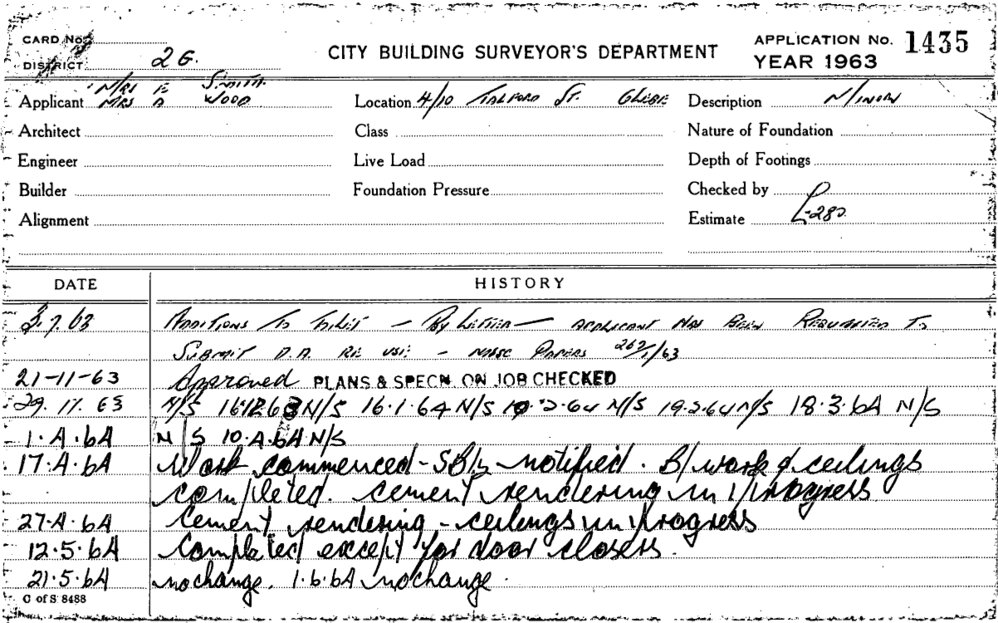 CARD No.
CITY BUILDING SURVEYOR'S DEPARTMENT
APPLICATION No. 1435
DISTRICT 2G.
YEAR 1963
Mrs E Smith
Applicant Mrs D Wood
Location 4/10 Talford St. Glebe
Description Minor
Architect
Class
Nature of Foundation
Engineer
Live Load
Depth of Footings
Builder
Foundation Pressure
Checked by
Alignment
Estimate £280
DATE
HISTORY
2.7.63 Additions to toilet - By Letter - applicant has been requested to
Submit D.A. re use - Papers
21-11-63 Approved PLANS & SPECN. ON JOB CHECKED
29.11.63 N/S 16.12.63 N/S 16.1.64 N/S 2.64 N/S 19.2.64 N/S 18.3.64 N/S
1.4.64 N/S 10.4.64 N/S
17.4.64 Work commenced - notified. B/work & ceilings
completed. cement rendering in progress
27.4.64 Cement rendering - ceilings in progress
12.5.64 Completed except for door closers.
21.5.64 no change. 1.6.64 no change.
C of S 8488